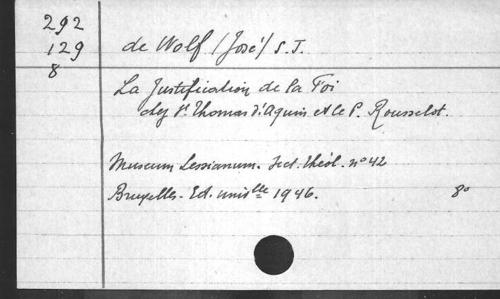 292
129
8
de Wolf (José) S.J.
La Justification de la Foi
chez St. Thomas d'Aquin et le P. Rousselot.
Museum Lessianum. Sect. théol. n° 42
Bruxelles. Ed. univlle 1946. 8°